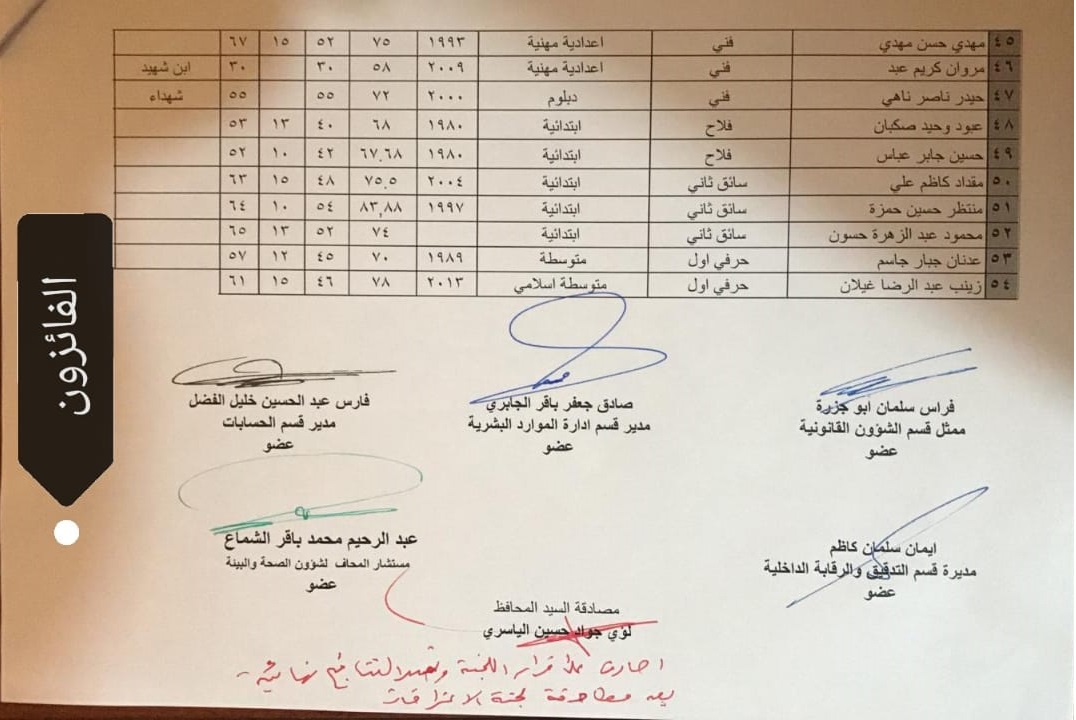 ٤٥ مهدي حسن مهدي فني اعدادية مهنية ١٩٩٣ ٧٥ ٥٢ ١٥ ٦٧
٤٦ مروان كريم عبد فني اعدادية مهنية ٢٠٠٩ ٥٨ ٣٠ ٣٠ ابن شهيد
٤٧ حيدر ناصر ناهي فني دبلوم ٢٠٠٠ ٧٢ ٥٥ ٥٥ شهداء
٤٨ عبود وحيد صكبان فلاح ابتدائية ١٩٨٠ ٦٨ ٤٠ ١٣ ٥٣
٤٩ حسين جابر عباس فلاح ابتدائية ١٩٨٠ ٦٧,٦٨ ٤٢ ١٠ ٥٢
٥٠ مقداد كاظم علي سائق ثاني ابتدائية ٢٠٠٤ ٧٥,٥ ٤٨ ١٥ ٦٣
٥١ منتظر حسين حمزة سائق ثاني ابتدائية ١٩٩٧ ٨٣,٨٨ ٥٤ ١٠ ٦٤
٥٢ محمود عبد الزهرة حسون سائق ثاني ابتدائية ٧٤ ٥٢ ١٣ ٦٥
٥٣ عدنان جبار جاسم حرفي اول متوسطة ١٩٨٩ ٧٠ ٤٥ ١٢ ٥٧
٥٤ زينب عبد الرضا غيلان حرفي اول متوسطة اسلامي ٢٠١٣ ٧٨ ٤٦ ١٥ ٦١
الفائزون
فراس سلمان ابو جزرة
ممثل قسم الشؤون القانونية
عضو
صادق جعفر باقر الجابري
مدير قسم ادارة الموارد البشرية
عضو
فارس عبد الحسين خليل الفضل
مدير قسم الحسابات
عضو
ايمان سلمان كاظم
مديرة قسم التدقيق والرقابة الداخلية
عضو
عبد الرحيم محمد باقر الشماع
مستشار المحاف لشؤون الصحة والبيئة
عضو
مصادقة السيد المحافظ
لؤي جواد حسين الياسري
قرار اللجنة وتعد النتائج نهائية
بعد مصادقة لجنة الاعتراضات